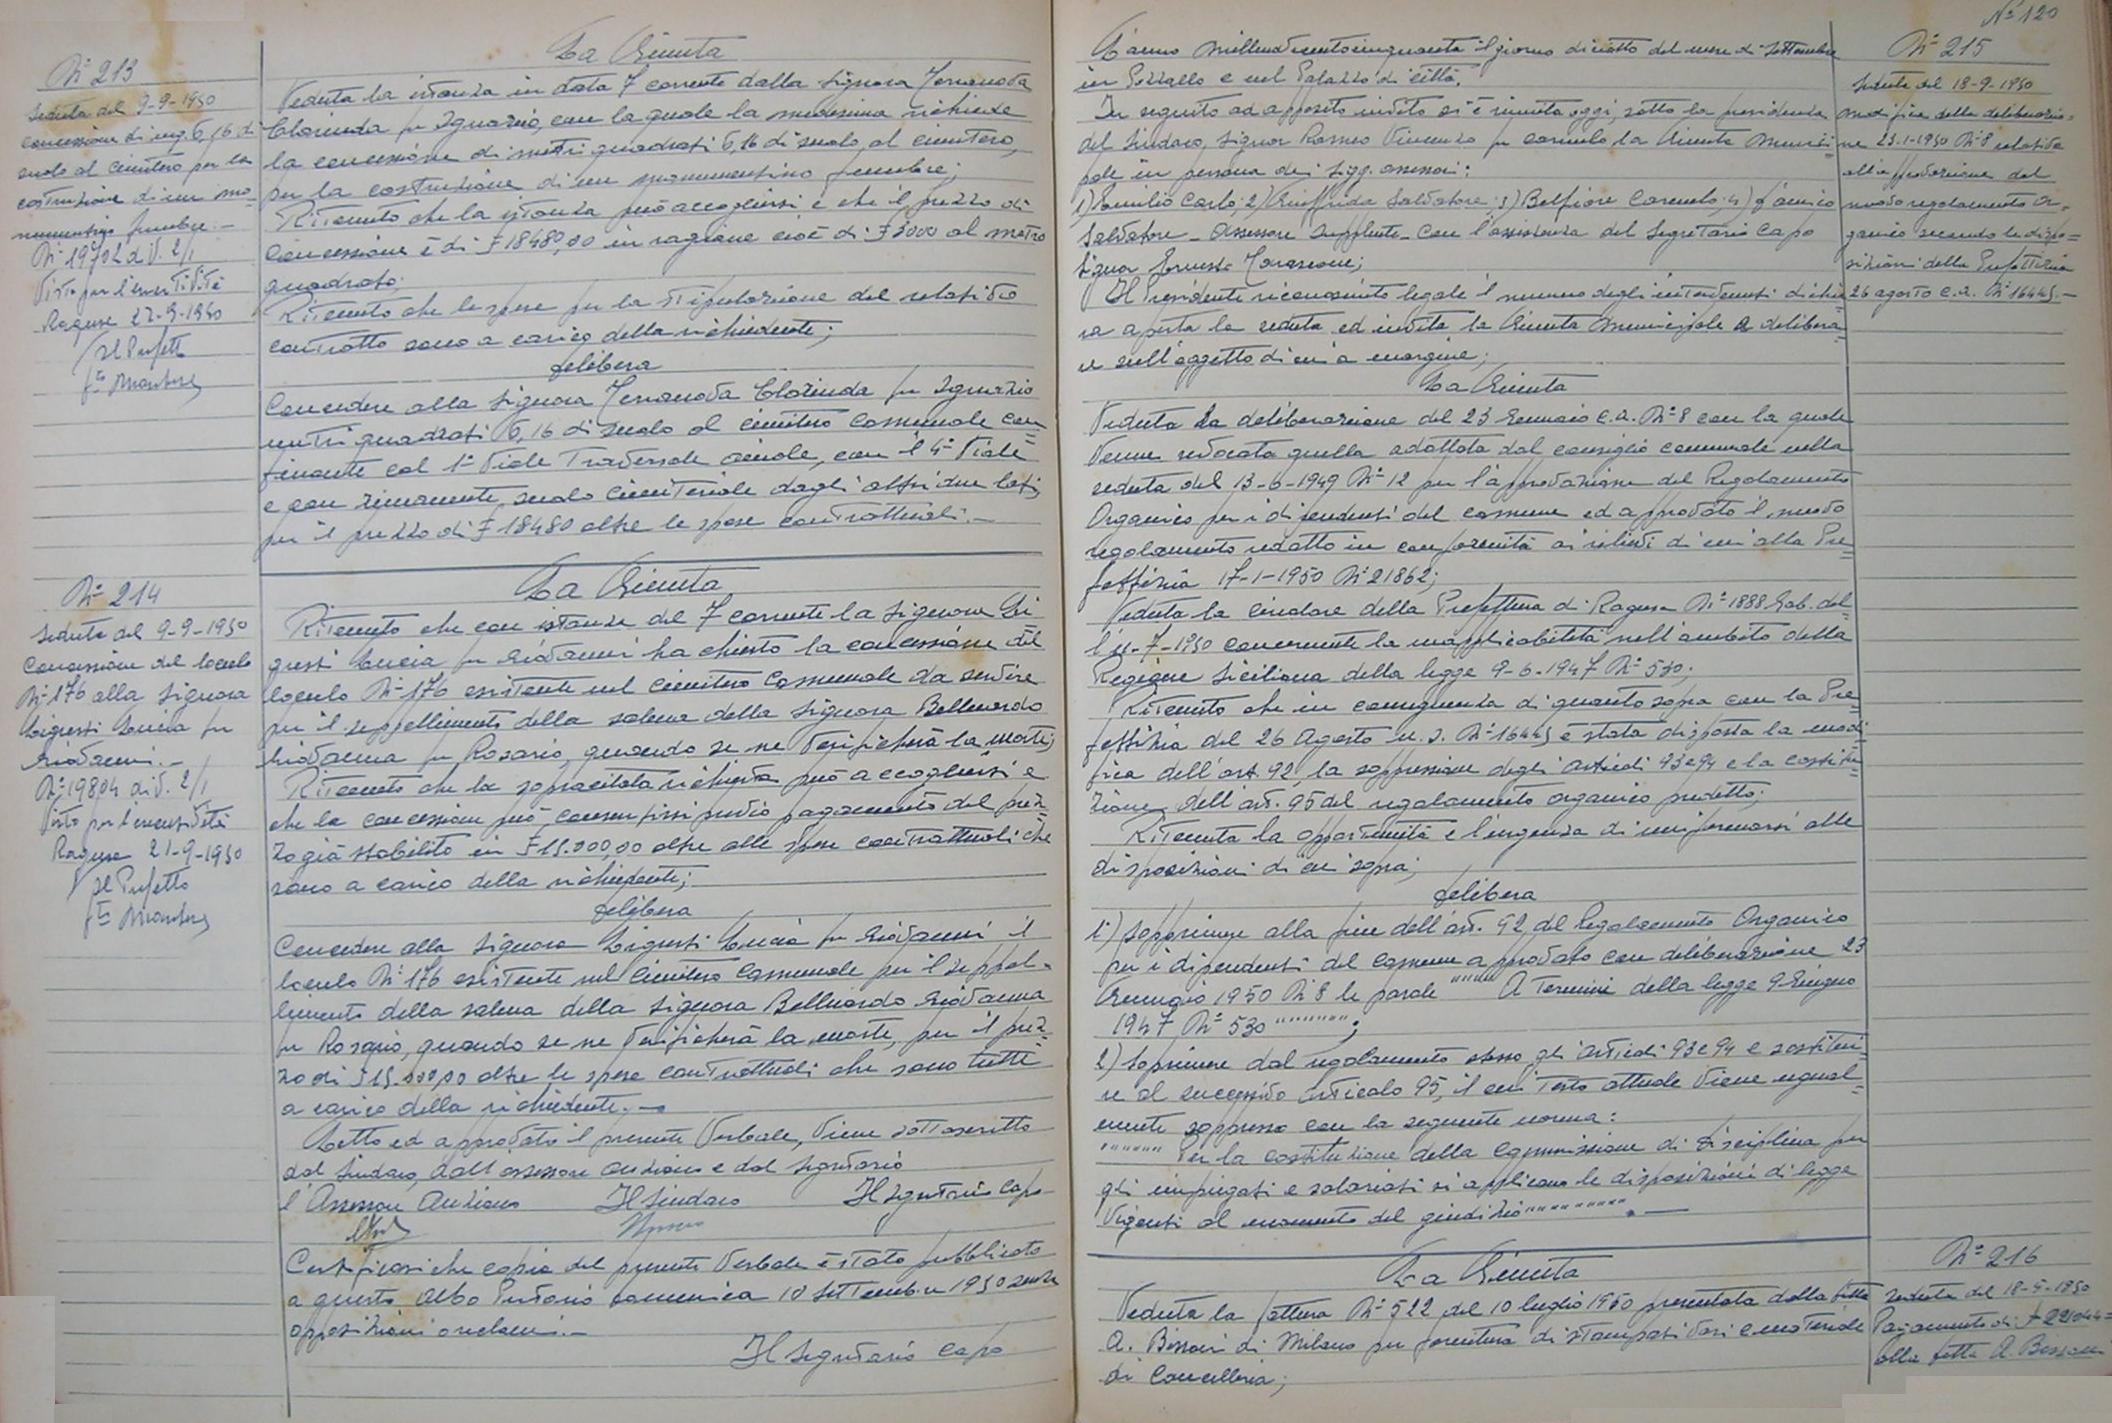 N° 213
Seduta del 9-9-1950
Concessione di mq. 6,16 di
suolo al cimitero per la
costruzione di un mo=
numentino funebre.-
N° 19702 div. 2/1
Visto per l'esecutività
Ragusa 22-9-1950
Il Prefetto
La Giunta
Veduta la istanza in data 7 corrente dalla Signora Terranova
Clorinda fu Ignazio, con la quale la medesima richiede
la concessione di metri quadrati 6,16 di suolo al cimitero,
per la costruzione di un monumentino funebre;
Ritenuto che la istanza può accogliersi e che il prezzo di
concessione è di £ 18480,00 in ragione cioè di £ 3000 al metro
quadrato;
Ritenuto che le spese per la stipulazione del relativo
contratto sono a carico della richiedente;
delibera
Concedere alla Signora Terranova Clorinda fu Ignazio
metri quadrati 6,16 di suolo al cimitero comunale con=
finante col 1° Viale Trasversale, con il 4° Viale
e con rimanente suolo cimiteriale dagli altri due lati,
per il prezzo di £ 18480 oltre le spese contrattuali.-
N° 214
Seduta del 9-9-1950
Concessione del loculo
N° 176 alla Signora
Ligresti Lucia fu
Giovanni.-
N° 19804 div. 2/1
Visto per l'esecutività
Ragusa 21-9-1950
Il Prefetto
La Giunta
Ritenuto che con istanza del 7 corrente la Signora Li
gresti Lucia fu Giovanni ha chiesto la concessione del
loculo N° 176 esistente nel Cimitero Comunale da servire
per il seppellimento della salma della Signora Belluardo
Giovanna fu Rosario, quando se ne verificherà la morte;
Ritenuto che la sopracitata richiesta può accogliersi e
che la concessione può consentirsi previo pagamento del prez=
zo già stabilito in £ 15.000,00 oltre alle spese contrattuali che
sono a carico della richiedente;
delibera
Concedere alla Signora Ligresti Lucia fu Giovanni il
loculo N° 176 esistente nel Cimitero Comunale per il seppel=
limento della salma della Signora Belluardo Giovanna
fu Rosario, quando se ne verificherà la morte, per il prez=
zo di £ 15.000,00 oltre le spese contrattuali che sono tutte
a carico della richiedente.-
Letto ed approvato il presente Verbale, viene sottoscritto
dal Sindaco, dall'assessore anziano e dal Segretario
l'Assessore Anziano Il Sindaco Il Segretario Capo
Certificasi che copia del presente Verbale è stato pubblicato
a questo Albo Pretorio domenica 10 Settembre 1950 senza
opposizioni o reclami.-
Il Segretario Capo
N° 120
L'anno millenovecentocinquanta il giorno diciotto del mese di Settembre
in Pozzallo e nel Palazzo di città.
In seguito ad apposito invito si è riunita oggi, sotto la presidenza
del Sindaco, Signor Rosmeo Vincenzo fu Carmelo la Giunta Munici=
pale in persona dei Sigg. assessori:
1) Emilio Carlo; 2) Giuffrida Salvatore; 3) Belfiore Carmelo; 4)
Salvatore - Assessore Supplente - con l'assistenza del Segretario Capo
Signor Ernesto;
Il Presidente riconosciuto legale il numero degli intervenuti dichia
ra aperta la seduta ed invita la Giunta Municipale a delibera
re sull'oggetto di cui a margine;
N° 215
Seduta del 18-9-1950
modifica della deliberazio=
ne 23-1-1950 N° 8 relativa
all'approvazione del
nuovo regolamento or=
ganico secondo le dispo=
sizioni della Prefettizia
26 agosto c.a. N° 16445.-
La Giunta
Veduta la deliberazione del 23 Gennaio c.a. N° 8 con la quale
venne revocata quella adottata dal consiglio comunale nella
seduta del 13-6-1949 N° 12 per l'approvazione del Regolamento
Organico per i dipendenti del comune ed approvato il nuovo
regolamento redatto in conformità ai rilievi di cui alla Pre
fettizia 17-1-1950 N° 21862;
Veduta la circolare della Prefettura di Ragusa N° 1888 Gab. del=
l'11-7-1950 concernente la inapplicabilità nell'ambito della
Regione Siciliana della legge 9-6-1947 N° 530;
Ritenuto che in conseguenza di quanto sopra con la Pre=
fettizia del 26 Agosto u.s. N° 16445 è stata disposta la modi
fica dell'art. 92, la soppressione degli articoli 93 e 94 e la costitu=
zione dell'art. 95 del regolamento organico predetto;
Ritenuta la opportunità e l'urgenza di uniformarsi alle
disposizioni di cui sopra;
delibera
1°) Sopprimere alla fine dell'art. 92 del Regolamento Organico
per i dipendenti del comune approvato con deliberazione 23
Gennaio 1950 N° 8 le parole """"" A Termini della legge 9 Giugno
1947 N° 530 """"""";
2) Sopprimere dal regolamento stesso gli articoli 93 e 94 e sostitui=
re al successivo articolo 95, il cui testo attuale viene ugual=
mente soppresso con la seguente norma:
"""""" Per la costituzione della Commissione di Disciplina per
gli impiegati e salariati si applicano le disposizioni di legge
vigenti al momento del giudizio """""""""".-
La Giunta
Veduta la fattura N° 522 del 10 luglio 1950 presentata dalla Ditta
A. Bessoni di Milano per fornitura di stampati vari e materiale
di Cancelleria;
N° 216
Seduta del 18-9-1950
Pagamento di £
alla Ditta A. Bessoni